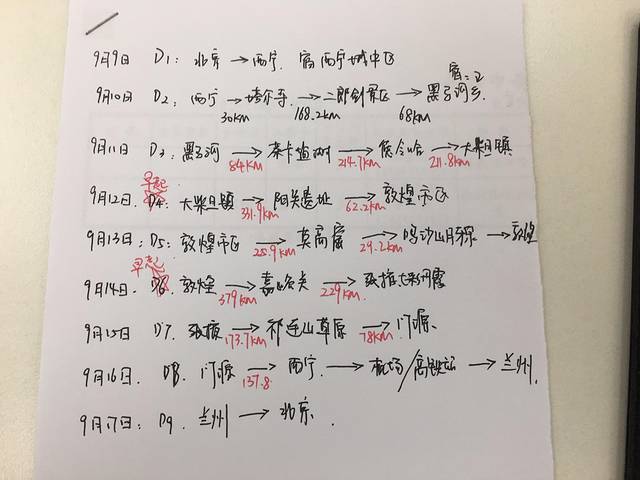 9月9日 D1: 北京 → 西宁. 宿西宁城中区
9月10日 D2: 西宁 → 塔尔寺 → 二郎剑景区 → 黑马河乡. 宿:
30KM 168.2KM 68KM
9月11日 D3: 黑马河 → 茶卡盐湖 → 德令哈 → 大柴旦镇
84KM 214.7KM 211.8KM
早起
9月12日 D4: 大柴旦镇 → 阳关遗址 → 敦煌市区
331.9KM 62.2KM
9月13日: D5: 敦煌市区 → 莫高窟 → 鸣沙山月牙泉 → 敦煌
25.9KM 29.2KM
早起
9月14日. D6. 敦煌 → 嘉峪关 → 张掖七彩丹霞
379KM 229KM
9月15日 D7. 张掖 → 祁连山草原 → 门源.
173.7KM 78KM
9月16日. D8. 门源 → 西宁. → 机场/高铁站 → 兰州.
137.8
9月17日: D9. 兰州 → 北京.